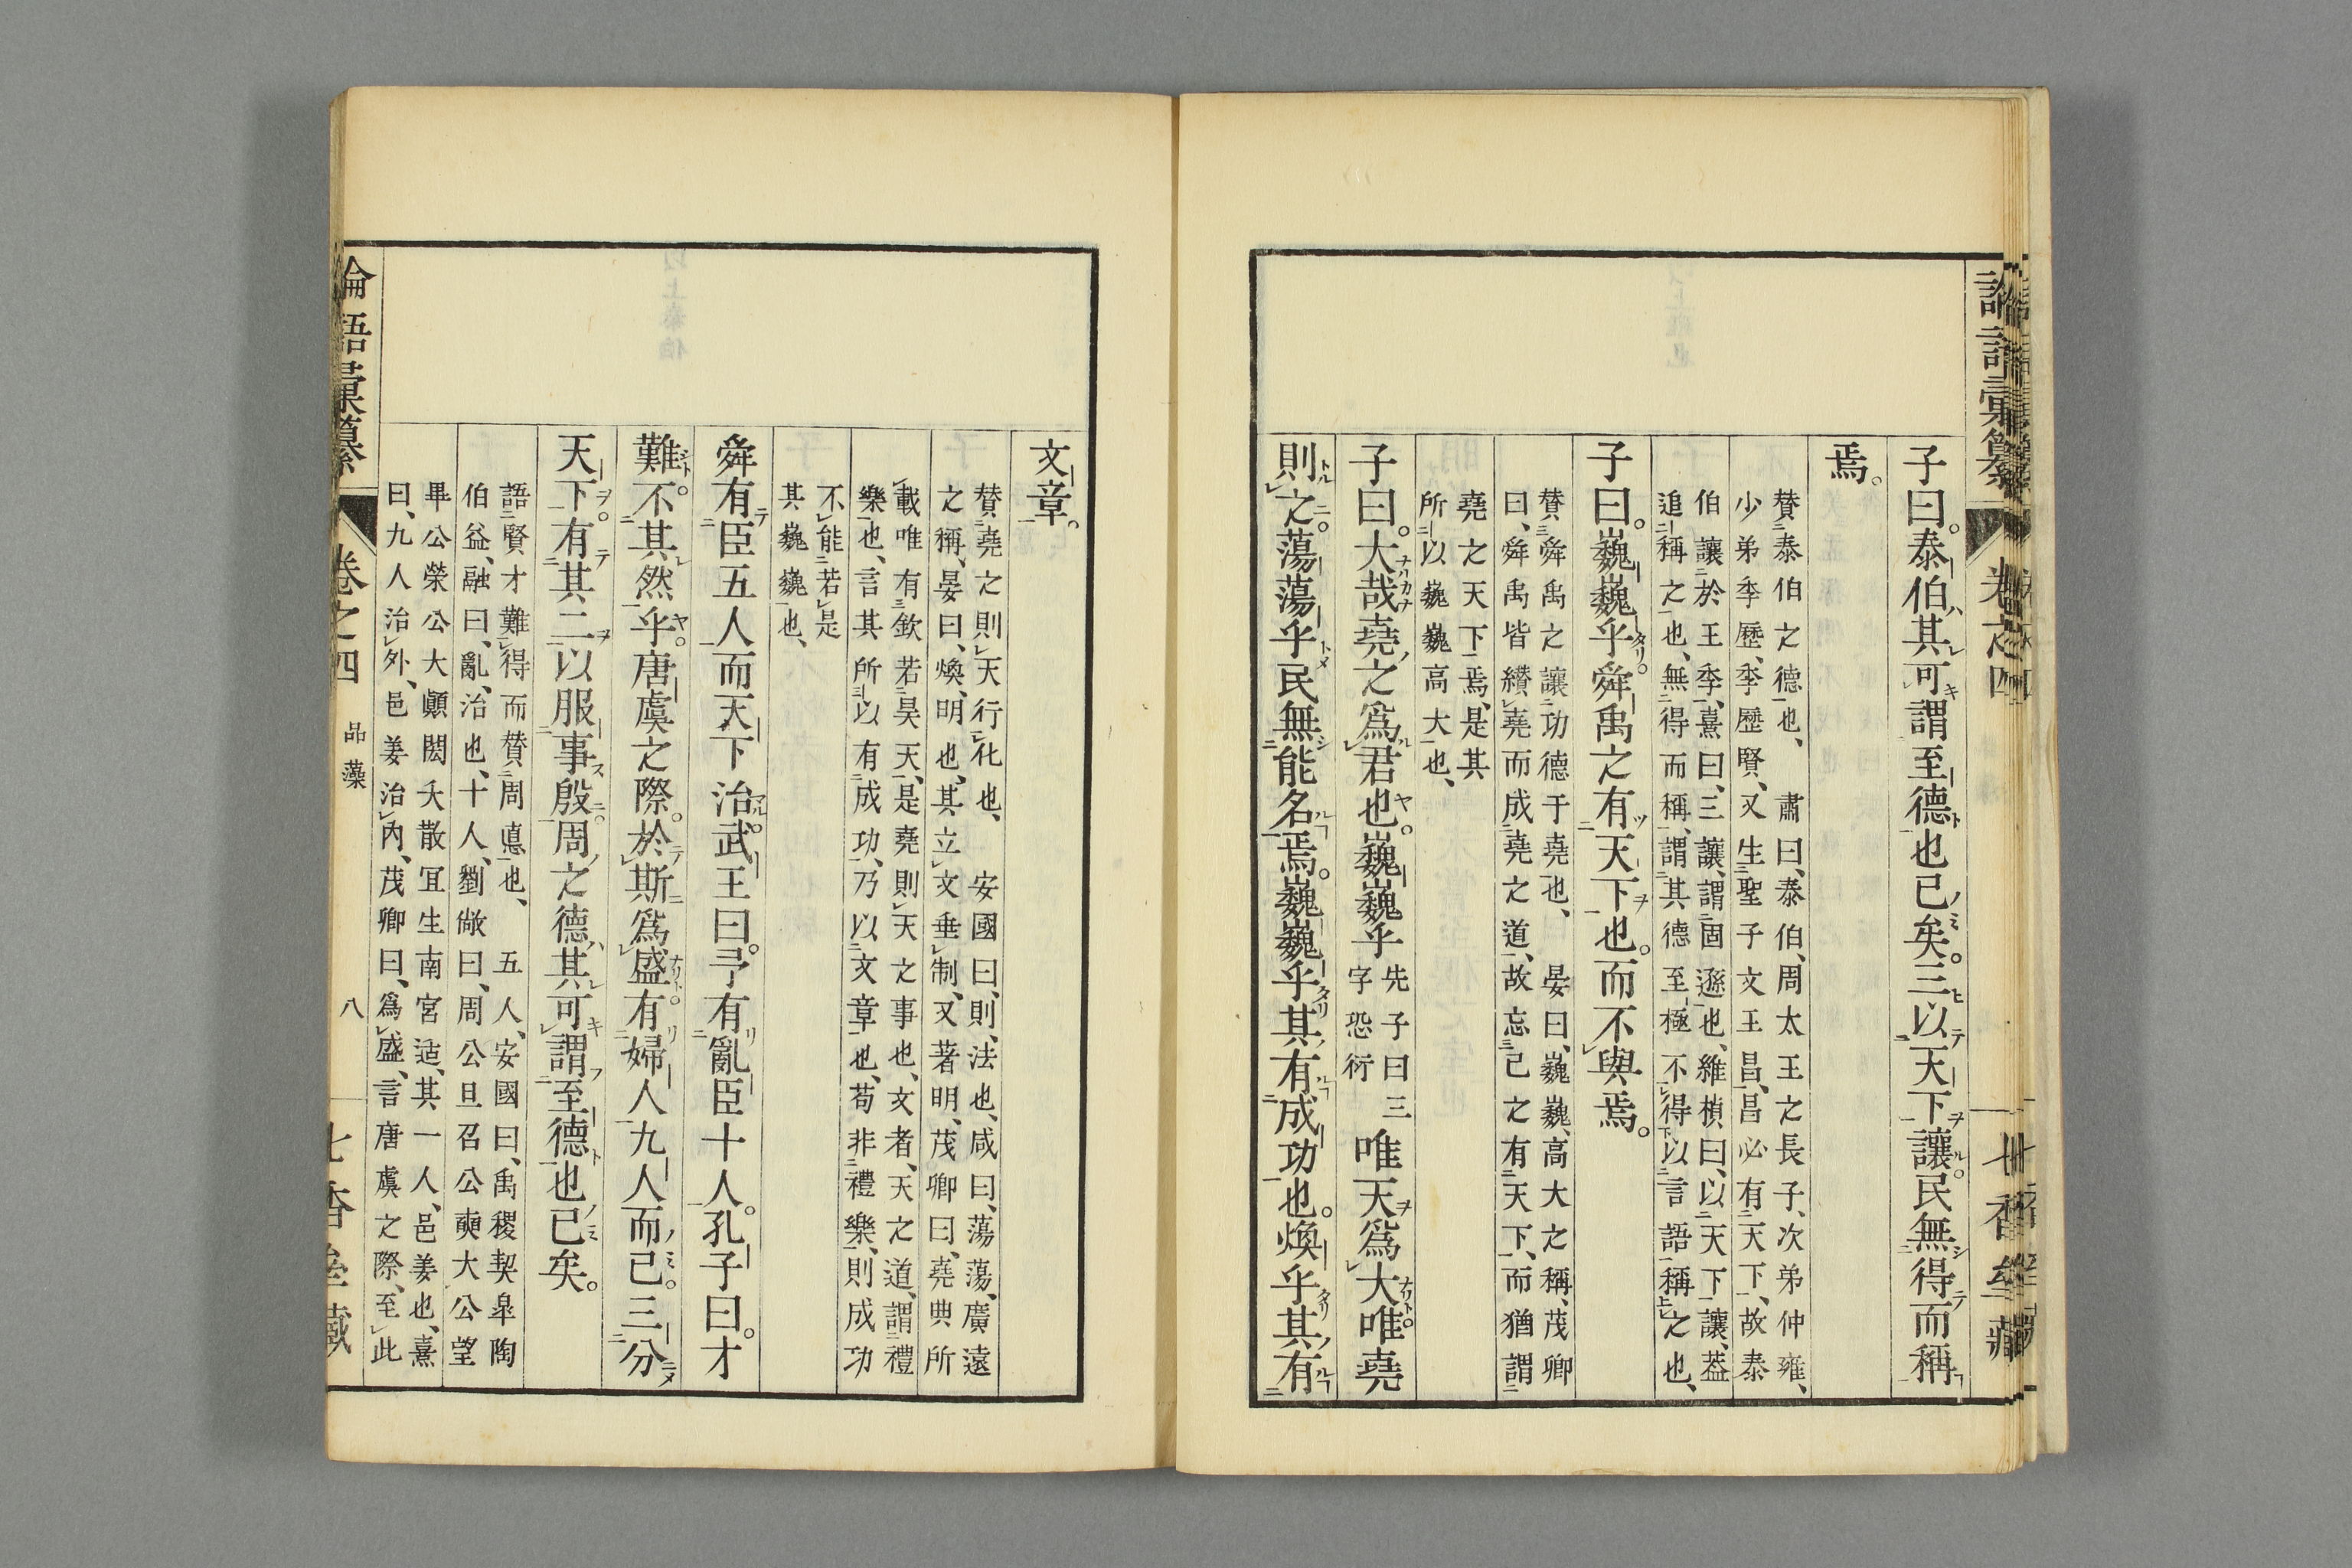 子曰。泰伯其可謂至德也已矣。三以天下讓。民無得而稱
焉。
賛泰伯之德也、肅曰、泰伯、周太王之長子、次弟仲雍、
少弟季歷、季歷賢、又生聖子文王昌、昌必有天下、故泰
伯讓於王季、熹曰、三讓、謂固遜也、維楨曰、以天下讓、葢
追稱之也、無得而稱、謂其德至極不得以言語稱之也、
子曰。巍巍乎。舜禹之有天下也。而不與焉。
賛舜禹之讓功德于堯也、晏曰、巍巍、高大之稱、茂卿
曰、舜禹皆纉堯而成堯之道、故忘己之有天下、而猶謂
堯之天下焉、是其
所以巍巍高大也、
子曰。大哉堯之爲君也。巍巍乎
先子曰三
字恐衍
唯天爲大。唯堯
則之。蕩蕩乎民無能名焉。巍巍乎其有成功也。煥乎其有
論語彙纂 卷之四 七香堂藏
文章。
賛堯之則天行化也、安國曰、則、法也、咸曰、蕩蕩、廣遠
之稱、晏曰、煥、明也、其立文垂制、又著明、茂卿曰、堯典所
載唯有欽若昊天、是堯則天之事也、文者、天之道、謂禮
樂也、言其所以有成功、乃以文章也、苟非禮樂、則成功
不能若是
其巍巍也、
舜有臣五人而天下治。武王曰。予有亂臣十人。孔子曰。才
難。不其然乎。唐虞之際。於斯爲盛。有婦人九人而已。三分
天下。有其二以服事殷。周之德其可謂至德也已矣。
語賢才難得而賛周悳也、五人、安國曰、禹稷契皐陶
伯益、融曰、亂、治也、十人、劉敞曰、周公旦召公奭大公望
畢公榮公大顚閎夭散冝生南宮适、其一人、邑姜也、熹
曰、九人治外、邑姜治內、茂卿曰、爲盛、言唐虞之際、至此
論語彙纂 卷之四 品藻 八 七香堂藏